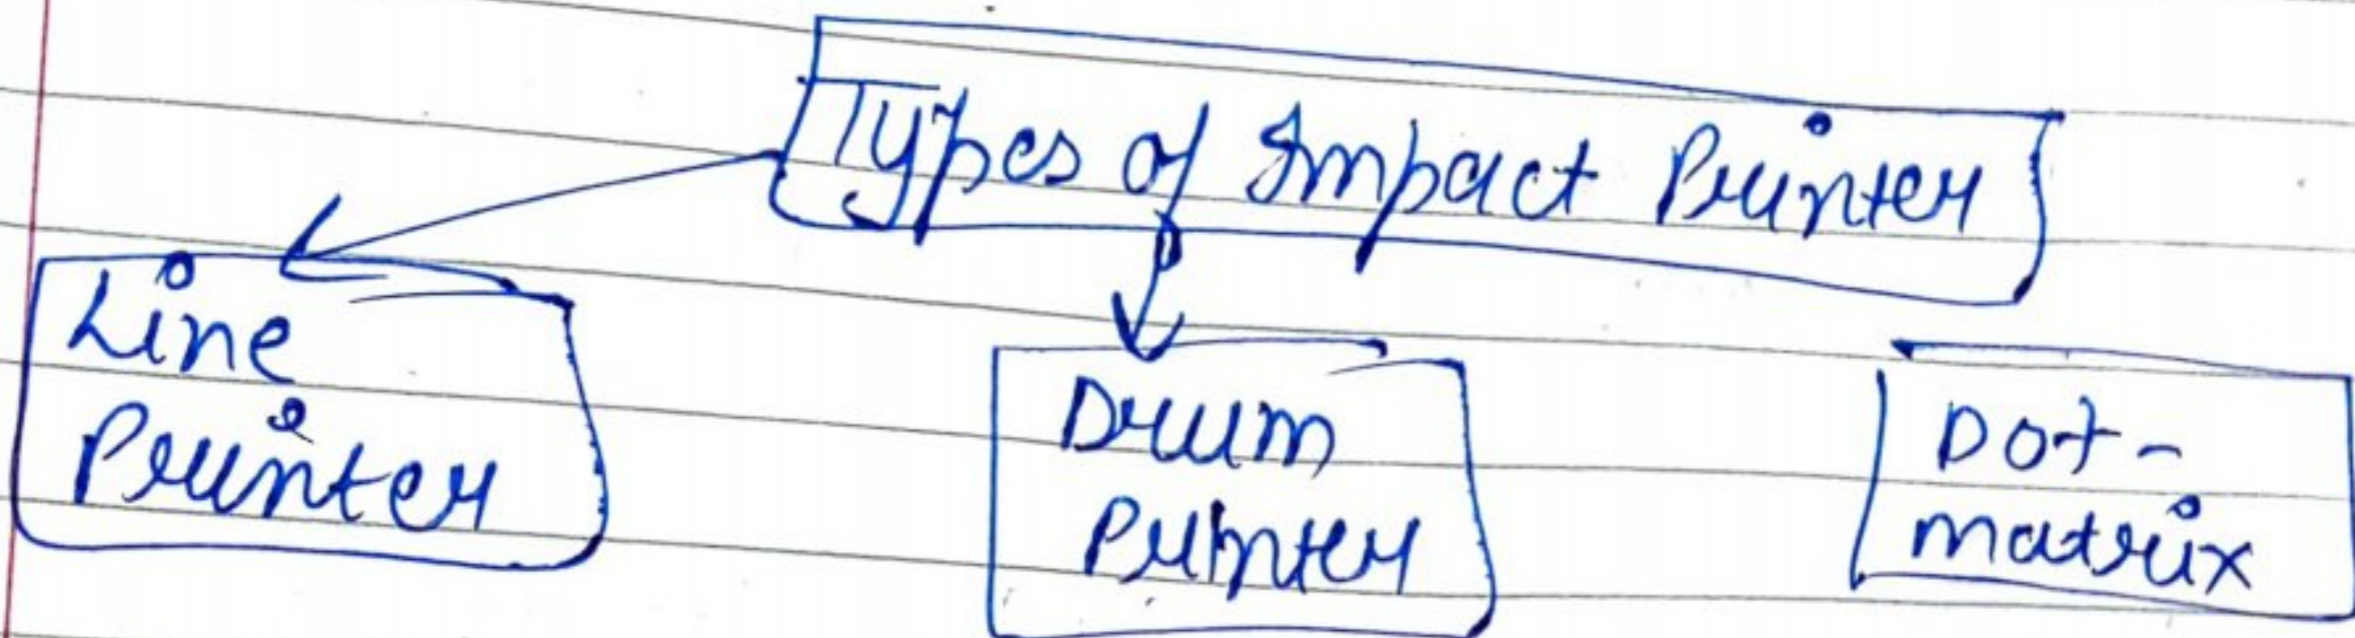 Types of Impact Printer
Line
Printer
Drum
Printer
Dot-
matrix